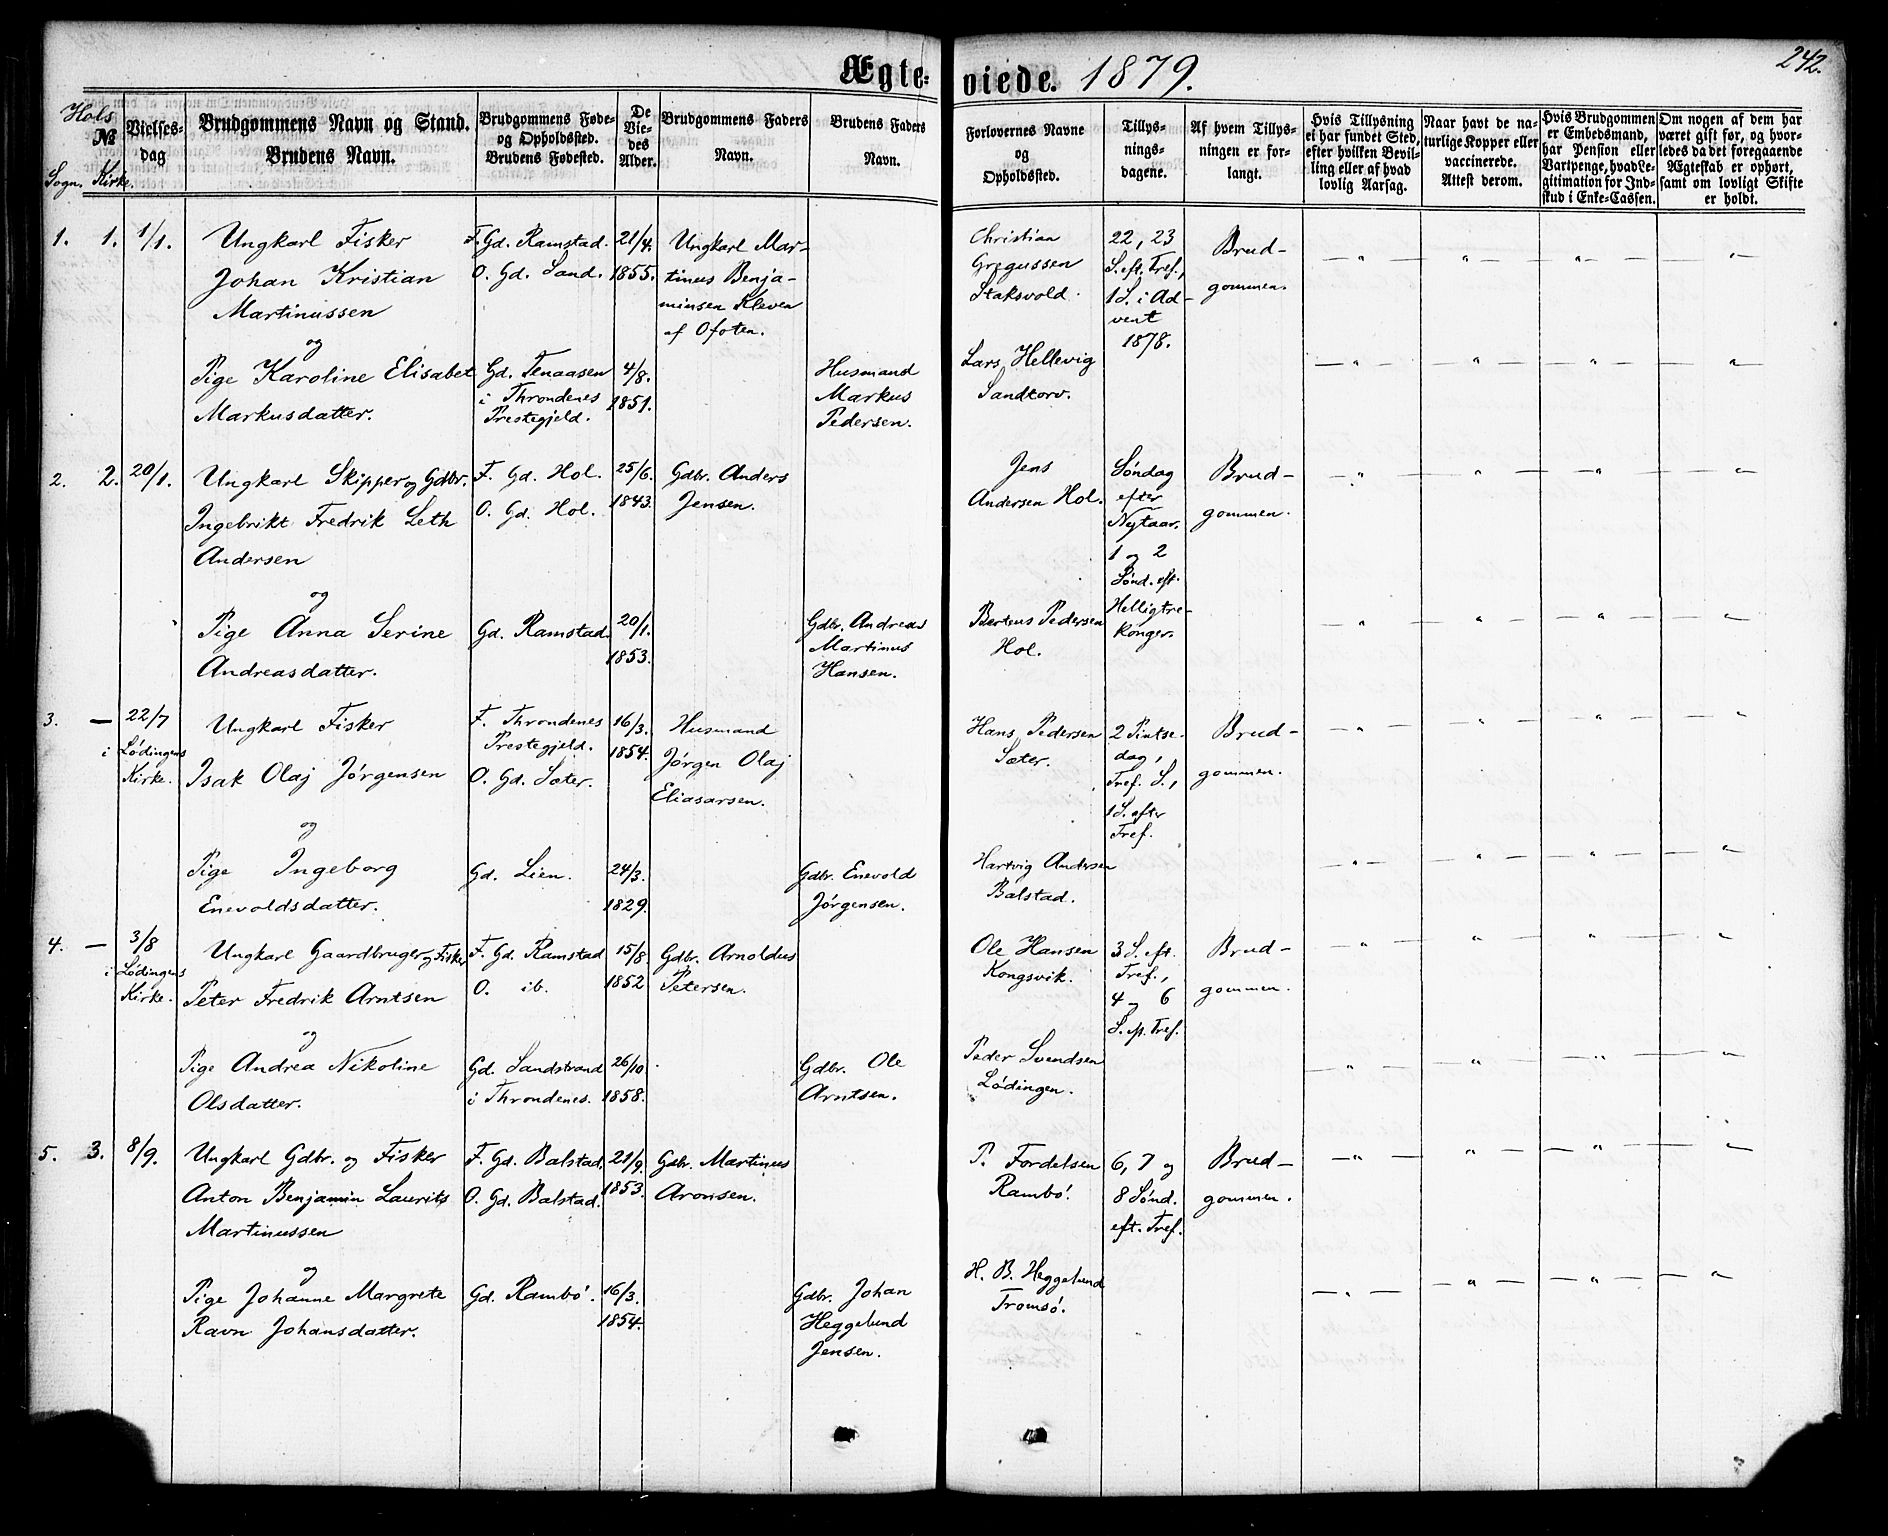 Ægteviede. 1879.
242.
Hols
№
Sogn. Kirke.
Vielses-
dag
Brudgommens Navn og Stand.
Brudens Navn.
Brudgommens Føde-
og Opholdssted.
Brudens Fødested.
De
Vie-
des
Alder.
Brudgommens Faders
Navn.
Brudens Faders
Navn.
Forlovernes Navne
og
Opholdssted.
Tillys-
nings-
dagene.
Af hvem Tillys-
ningen er for-
langt.
Hvis Tillysning
ei har fundet Sted,
efter hvilken Bevil-
ling eller af hvad
lovlig Aarsag.
Naar havt de na-
turlige Kopper eller
vaccinerede.
Attest derom.
Hvis Brudgommen
er Embedsmand,
har Pension eller
Vartpenge, hvad Le-
gitimation for Ind-
skud i Enke-Cassen.
Om nogen af dem har
været gift før, og hvor-
ledes da det foregaaende
Ægteskab er ophørt,
samt om lovligt Skifte
er holdt.
1. 1. 1/1.
Ungkarl Fisker
Johan Kristian
Martinussen
og
Pige Karoline Elisabet
Markusdatter.
F. Gd. Ramstad.
O. Gd. Sand.
Gd. Tenaasen
i Throndenes
Prestegjeld.
21/4.
1855.
4/8.
1851.
Ungkarl Mar-
tinus Benja-
minsen Kleven
af Ofoten.
Husmand
Markus
Pedersen.
Christian
Gregussen
Staksvold.
Lars Hellevig
Sandtorv.
22, 23
S. eft. Tref.,
1 S. i Ad-
vent
1878.
Brud-
gommen.
2. 2. 20/1.
Ungkarl Skipper og Gdbr.
Ingebrikt Fredrik Leth
Andersen
og
Pige Anna Serine
Andreasdatter.
F. Gd. Hol.
O. Gd. Hol.
Gd. Ramstad.
25/6.
1843.
20/1.
1853.
Gdbr. Anders
Jensen.
Gdbr. Andreas
Martinus
Hansen.
Jens
Andersen Hol.
Berteus Pedersen
Hol.
Søndag
efter
Nytaar.
1 og 2
Sønd. eft.
Helligtre-
konger.
Brud-
gommen.
3. — 22/7
i Lødingens
Kirke.
Ungkarl Fisker
Isak Olaj Jørgensen
og
Pige Ingeborg
Enevoldsdatter.
F. Throndenes
Prestegjeld.
O. Gd. Sæter.
Gd. Lien.
16/3.
1854.
24/3.
1829.
Husmand
Jørgen Olaj
Eliasarsen.
Gdbr. Enevold
Jørgensen.
Hans Pedersen
Sæter.
Hartvig Andersen
Balstad.
2 Pintse-
dag,
Tref. S.,
1 S. efter
Tref.
Brud-
gommen.
4. — 3/8
i Lødingens
Kirke.
Ungkarl Gaardbruger og Fisker
Peter Fredrik Arntsen
og
Pige Andrea Nikoline
Olsdatter.
F. Gd. Ramstad
O. ib.
Gd. Sandstrand
i Throndenes.
15/8.
1852
26/10
1858.
Gdbr. Arnoldus
Petersen.
Gdbr. Ole
Arntsen.
Ole Hansen
Kongsvik.
Peder Svendsen
Lødingen.
3 S. eft.
Tref.,
4 og 6
S. eft. Tref.
Brud-
gommen.
5. 3. 8/9.
Ungkarl Gdbr. og Fisker
Anton Benjamin Laurits
Martinussen
og
Pige Johanne Margrete
Ravn Johansdatter.
F. Gd. Balstad.
O. Gd. Balstad.
Gd. Rambø.
21/9.
1853.
16/3.
1854.
Gdbr. Martinus
Aronsen.
Gdbr. Johan
Heggelund
Jensen.
P. Fordelsen
Rambø.
H. B. Heggelund
Tromsø.
6, 7 og
8 Sønd.
eft. Tref.
Brud-
gommen.